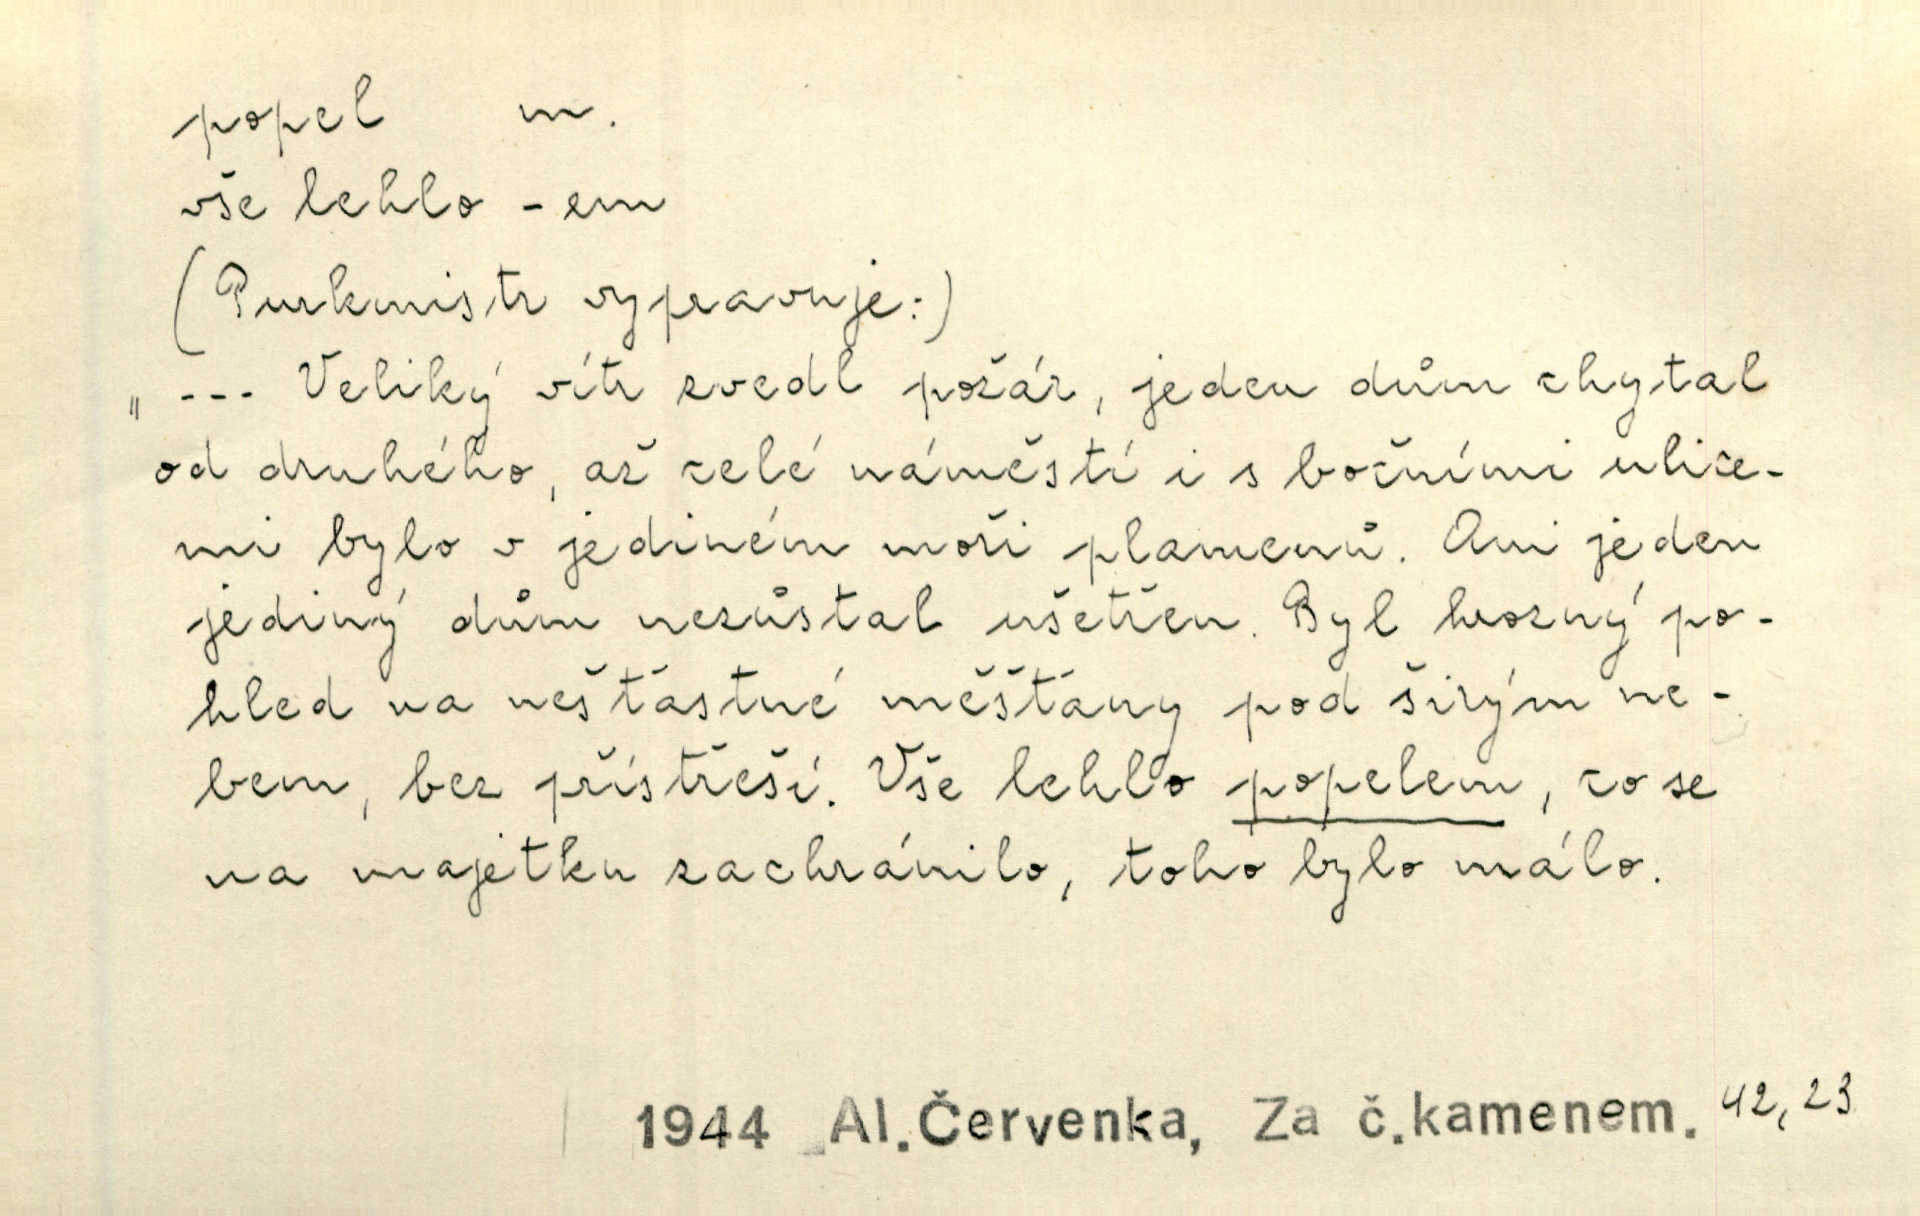 popel m.
vše lehlo -em
(Purkmistr vypravuje:)
„ --- Veliký vítr svedl požár, jeden dům chytal
od druhého, až celé náměstí i s bočními ulice-
mi bylo v jediném moři plamenů. Ani jeden
jediný dům nezůstal ušetřen. Byl hrozný po-
hled na nešťastné měšťany pod širým ne-
bem, bez přístřeší. Vše lehlo popelem, co se
na majetku zachránilo, toho bylo málo.
1944 Al.Červenka, Za č.kamenem. 42, 23